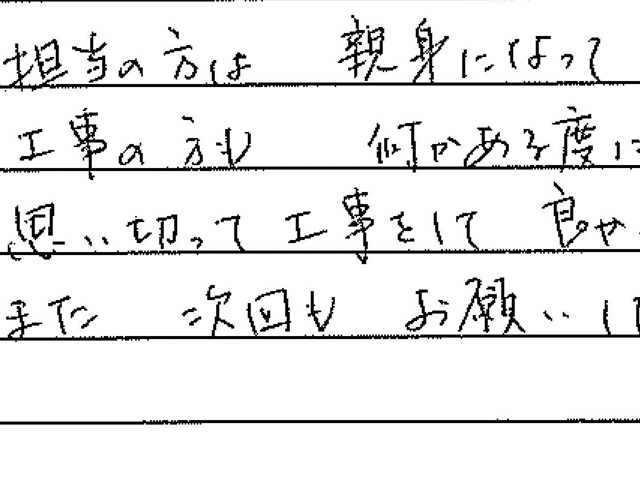 担当の方は 親身になって
工事の方も 何かある度に
思い切って工事をして 良か
また 次回も お願いし